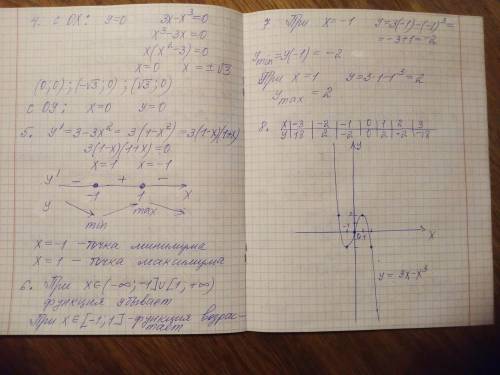 4. с OX: y=0 3x-x³=0
x³-3x=0
x(x²-3)=0
x=0 x=±√3
(0;0); (-√3;0); (√3;0)
с OY: x=0 y=0
5. y'=3-3x²=3(1-x²)=3(1-x)(1+x)
3(1-x)(1+x)=0
x=1 x=-1
y' - + -
-1 1 x
y min max
x=-1 -точка минимума
x=1 - точка максимума
6. При x∈(-∞;-1]∪[1;+∞)
функция убывает
При x∈[-1;1]-функция возрас-
тает
7. При x=-1 y=3(-1)-(-1)³=
=-3+1=-2
y min=y(-1)=-2
При x=1 y=3·1-1³=2
y max=2
8. x -3 -2 -1 0 1 2 3
y 18 2 -2 0 2 -2 -18
y
x
y=3x-x³